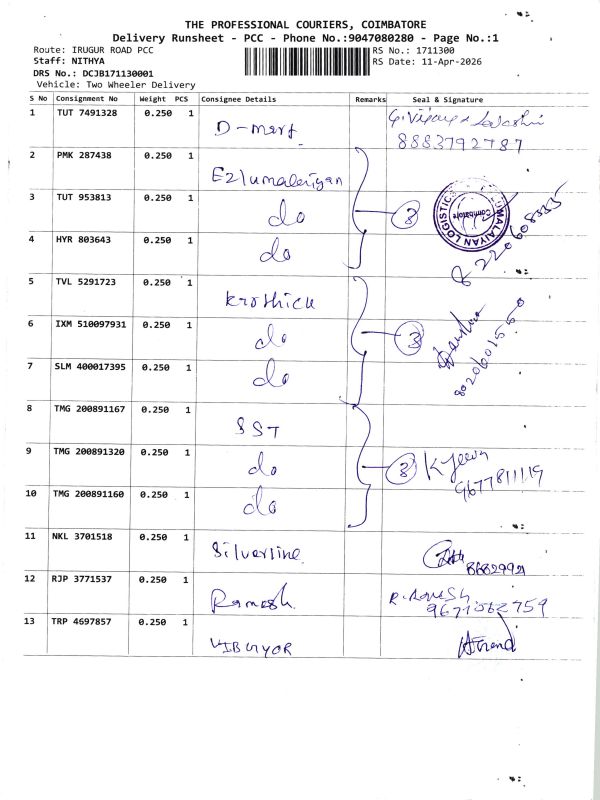 THE PROFESSIONAL COURIERS, COIMBATORE
Delivery Runsheet - PCC - Phone No.:9047080280 - Page No.:1
Route: IRUGUR ROAD PCC RS No.: 1711300
Staff: NITHYA RS Date: 11-Apr-2026
DRS No.: DCJB171130001
Vehicle: Two Wheeler Delivery
S No Consignment No Weight PCS Consignee Details Remarks Seal & Signature
1 TUT 7491328 0.250 1 D-mart
8883792787
2 PMK 287438 0.250 1 Ezlumalaiyan
3 TUT 953813 0.250 1 do 3
LOGISTICS Coimbatore
8220608335
4 HYR 803643 0.250 1 do
5 TVL 5291723 0.250 1 Krothicu
6 IXM 510097931 0.250 1 do 3
7 SLM 400017395 0.250 1 do
8 TMG 200891167 0.250 1 SST
9 TMG 200891320 0.250 1 do 3 K Jeeva
9677811119
10 TMG 200891160 0.250 1 do
11 NKL 3701518 0.250 1 Silverline
12 RJP 3771537 0.250 1 Ramesh R. Ramesh
13 TRP 4697857 0.250 1 VIBGYOR